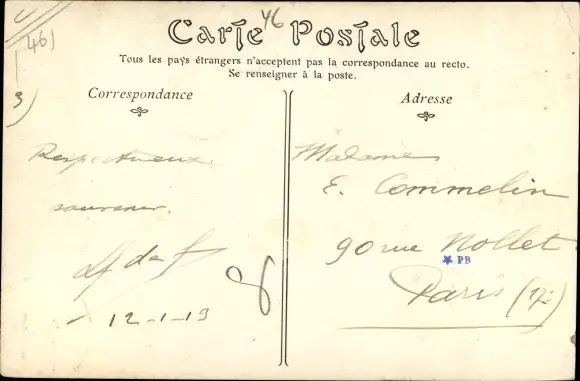 46
46)
3)
Carte Postale
Tous les pays étrangers n'acceptent pas la correspondance au recto.
Se renseigner à la poste.
Correspondance
Adresse
Respectueux
souvenir.
12-1-13
8
Madame
E. Commelin
90 rue Nollet
PB
Paris (17e)